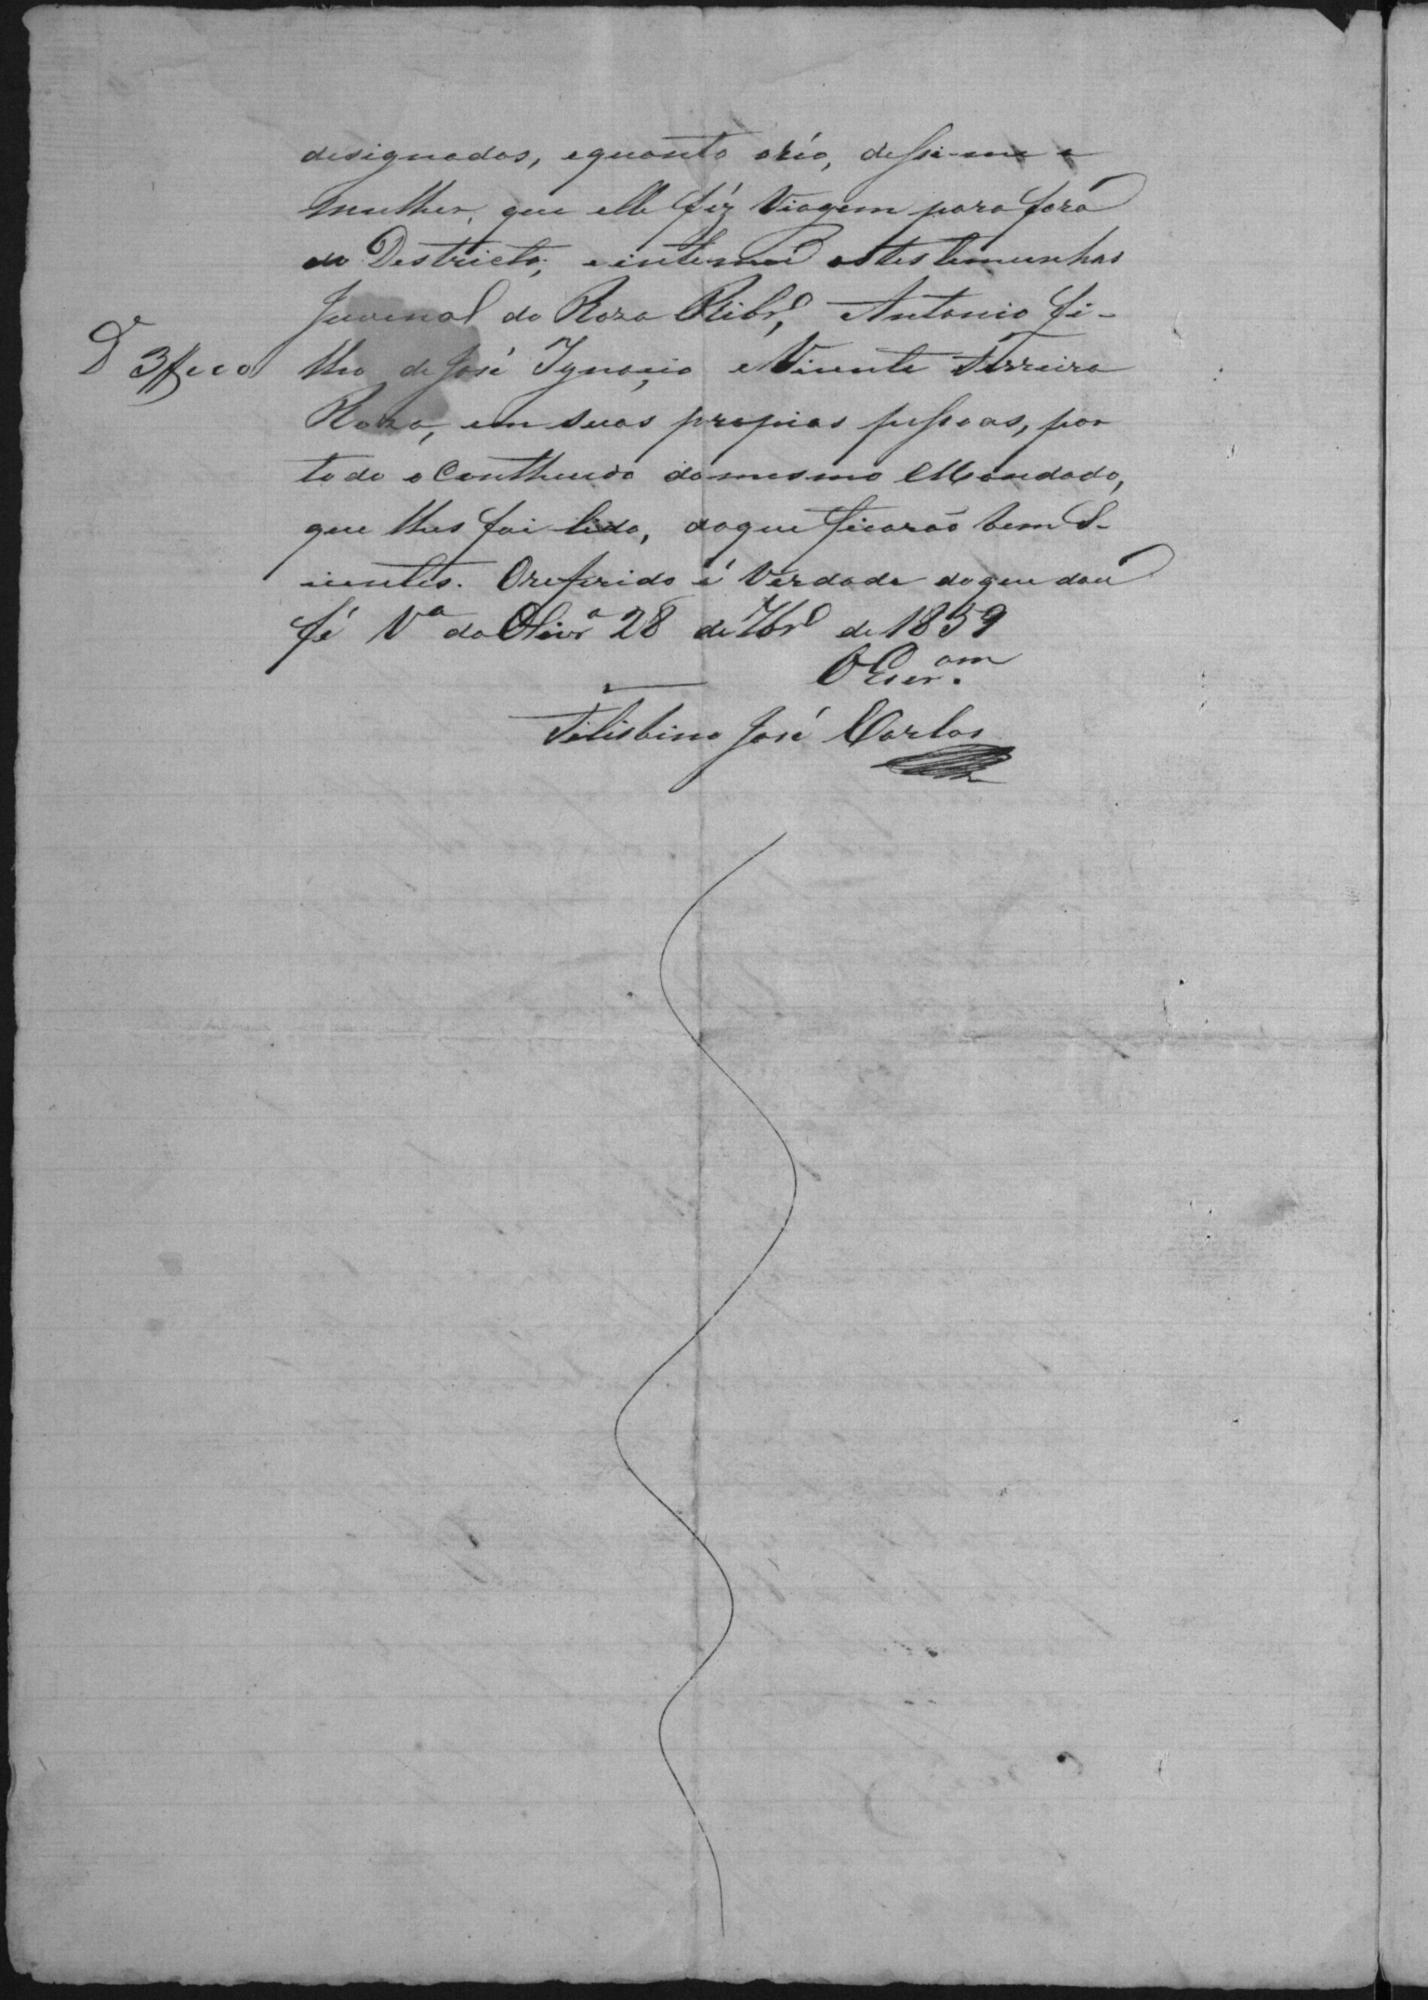 designados, equanto oréo, disse-me a
mulher, que elle féz Viagem para fóra
do Districto; e intemei as testemunhas
Juvenal da Roza Ribr.º, Antonio fi-
lho de José Ignacio e Vicente Ferreira
Roza, em suas propias pessoas, por
todo o Contheudo do mesmo Mandado,
que lhes foi lido, doque ficarão bem S-
cientes. Oreferido é Verdade doque dou
fé V.ª da Olivr.ª 28 de 7br.º de 1859
O Escr.am
Felisbino José Carlos